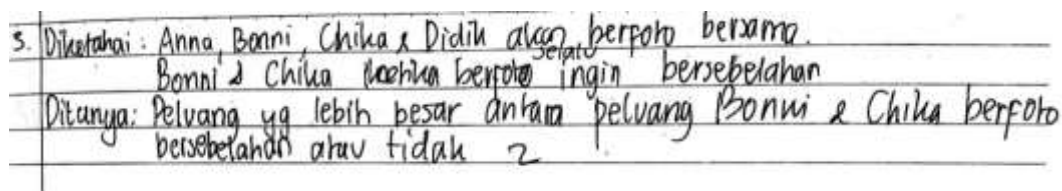 3. Diketahai : Anna, Bonni, Chika & Didik akan berfoto bersama.
Bonni & Chika ketika berfoto selalu ingin bersebelahan
Ditanya: Peluang yg lebih besar antara peluang Bonni & Chika berfoto
bersebelahan atau tidak ?